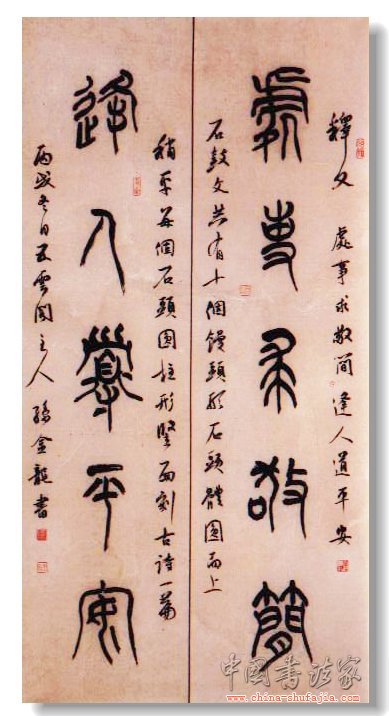 釋文 處事求敬簡 逢人道平安
處事求敬簡
石鼓文共有十個饅頭形石頭體圓而上
稍平每個石頭圓柱形竪面刻古詩一篇
逢人道平安
丙戌冬日五雲閣主人孫金龍書
中国书法家
www.china-shufajia.com